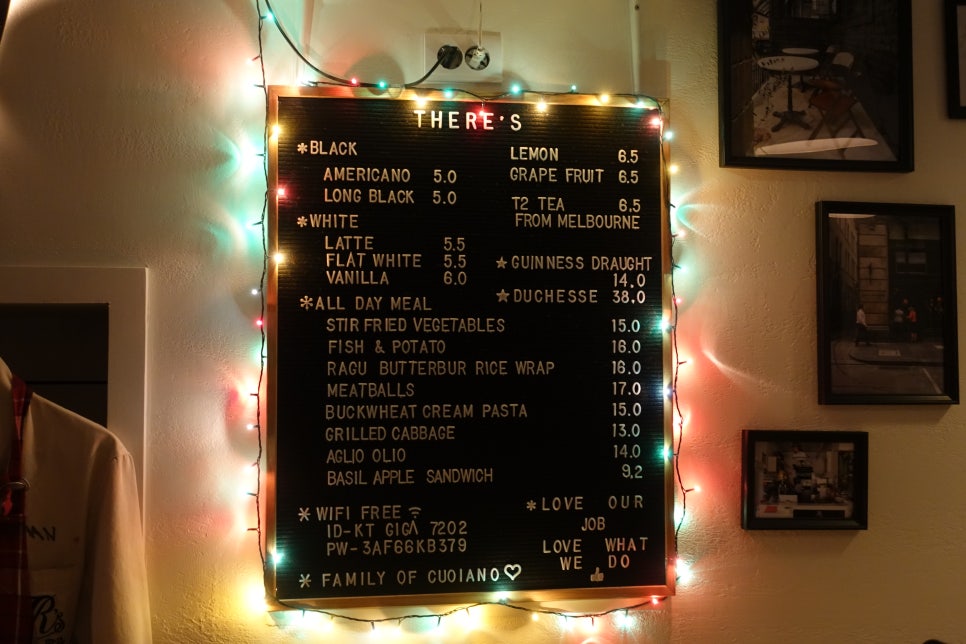 THERE'S
*BLACK
AMERICANO 5.0
LONG BLACK 5.0
*WHITE
LATTE 5.5
FLAT WHITE 5.5
VANILLA 6.0
LEMON 6.5
GRAPE FRUIT 6.5
T2 TEA 6.5
FROM MELBOURNE
★GUINNESS DRAUGHT
14.0
★DUCHESSE 38.0
*ALL DAY MEAL
STIR FRIED VEGETABLES 15.0
FISH & POTATO 16.0
RAGU BUTTERBUR RICE WRAP 16.0
MEATBALLS 17.0
BUCKWHEAT CREAM PASTA 15.0
GRILLED CABBAGE 13.0
AGLIO OLIO 14.0
BASIL APPLE SANDWICH 9.2
*WIFI FREE
ID-KT GIGA 7202
PW-3AF66KB379
*FAMILY OF CUOIANO♡
*LOVE OUR
JOB
LOVE WHAT
WE DO